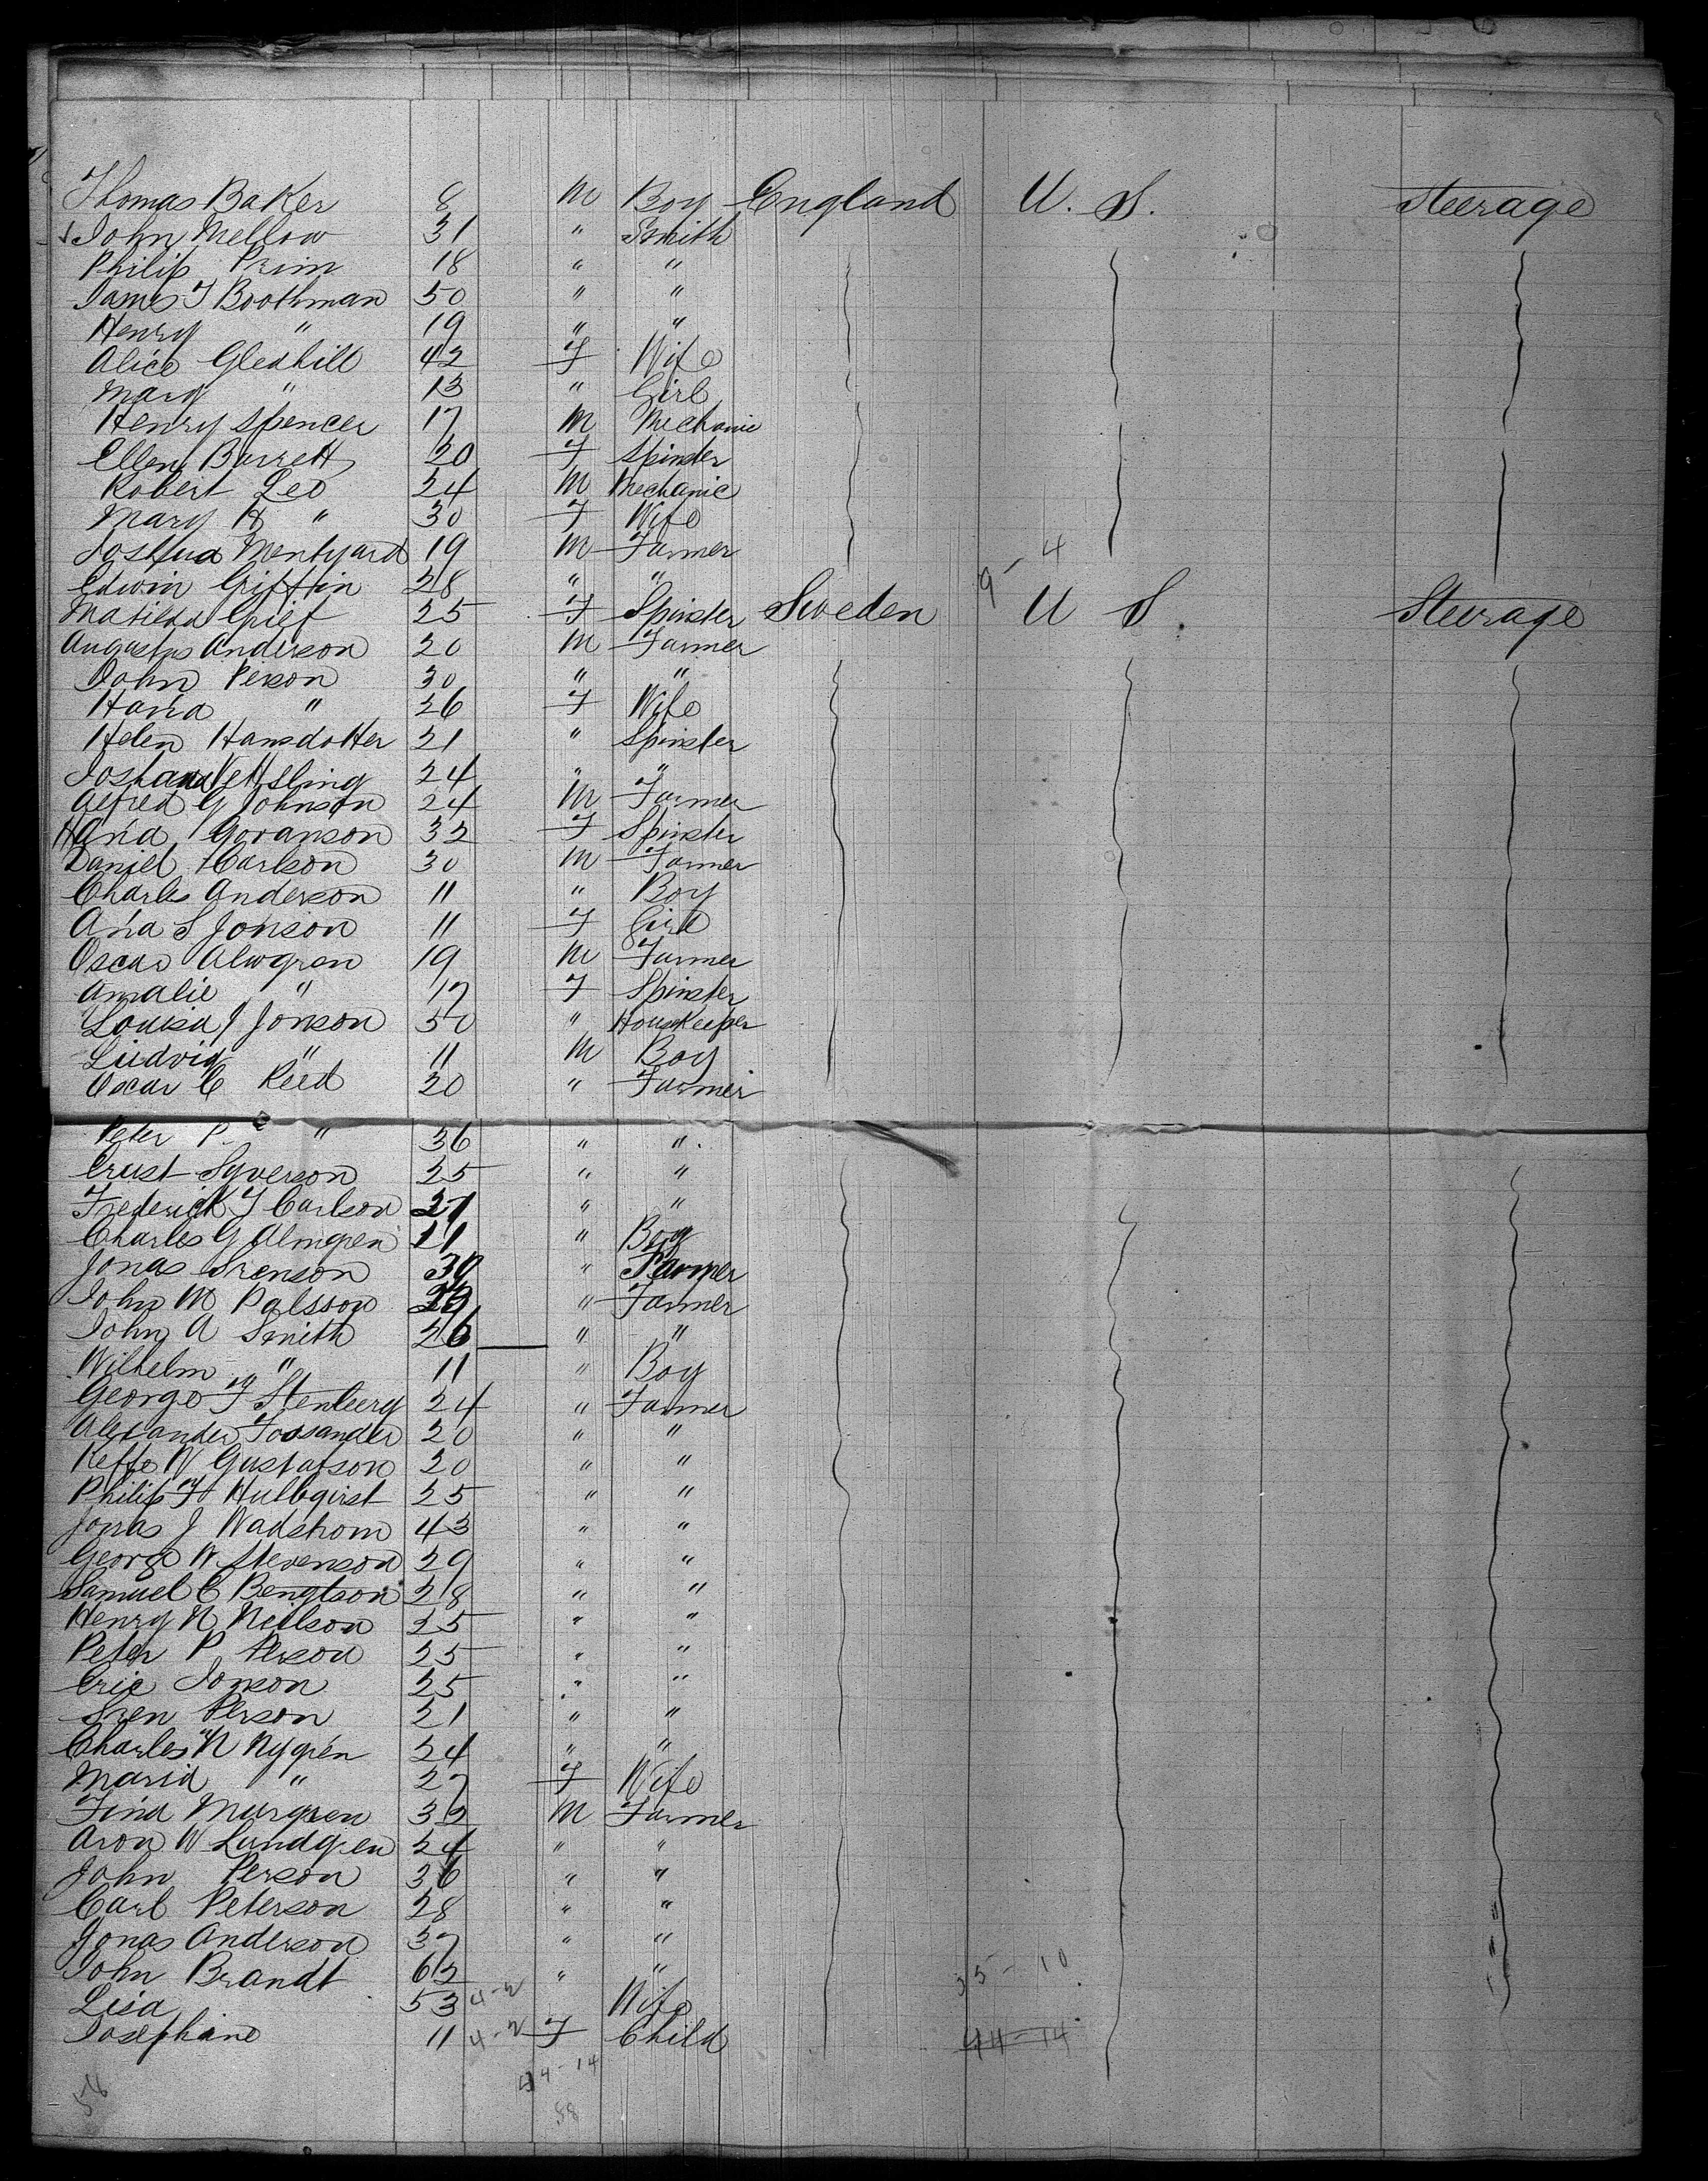 Thomas Baker 8 M Boy England U. S. Steerage
John Mellow 31 " Smith
Philip Prim 18 " "
James T Boothman 50 " "
Henry " 19 " "
Alice Gledhill 42 F Wife
Mary " 13 " Girl
Henry Spencer 17 M Mechanic
Ellen Barrett 20 F Spinster
Robert Leo 24 M Mechanic
Mary H " 30 F Wife
Joshua Mentyard 19 M Farmer
9 - 4
Edwin Griffin 28 " "
Matilda Grief 25 F Spinster Sweden U S. Steerage
Augustus Anderson 20 M Farmer
John Person 30 " "
Hana " 26 F Wife
Helen Hansdotter 21 " Spinster
24 " "
Alfred G Johnson 24 M Farmer
Hana Goranson 32 F Spinster
Daniel Carlson 30 M Farmer
Charles Anderson 11 " Boy
Ana S Jonson 11 F Girl
Oscar Almgren 19 M Farmer
Amalie " 17 F Spinster
Louisa J Jonson 50 " Housekeeper
Ludvig " 11 M Boy
Oscar C Reed 20 " Farmer
Peter P. " 36 " "
Ernst Syverson 25 " "
Frederick T Carlson " "
Charles G Almgren 11 " Boy
Jonas Svenson 30 " Farmer
John M Palsson " Farmer
John A Smith 26 " "
Wilhelm " 11 " Boy
George F Stenberg 24 " Farmer
Alexander Fossander 20 " "
W Gustafson 20 " "
Philip F Hultqvist 25 " "
Jonas J Wadstrom 43 " "
George W Stevenson 29 " "
Samuel C Bengtson 28 " "
Henry N Neilson 25 " "
Peter P Person 25 " "
Eric Jonson 25 " "
Sven Person 21 " "
Charles N Nygren 24 " "
Maria " 27 F Wife
Murgren 32 M Farmer
Aron W Lundgren 24 " "
John Person 36 " "
Carl Peterson 28 " "
Jonas Anderson 37 " "
John Brandt 62 " " 35 - 10
Lisa 53 4-2 Wife
Josephine 11 4-2 F Child 44-14
44-14
58